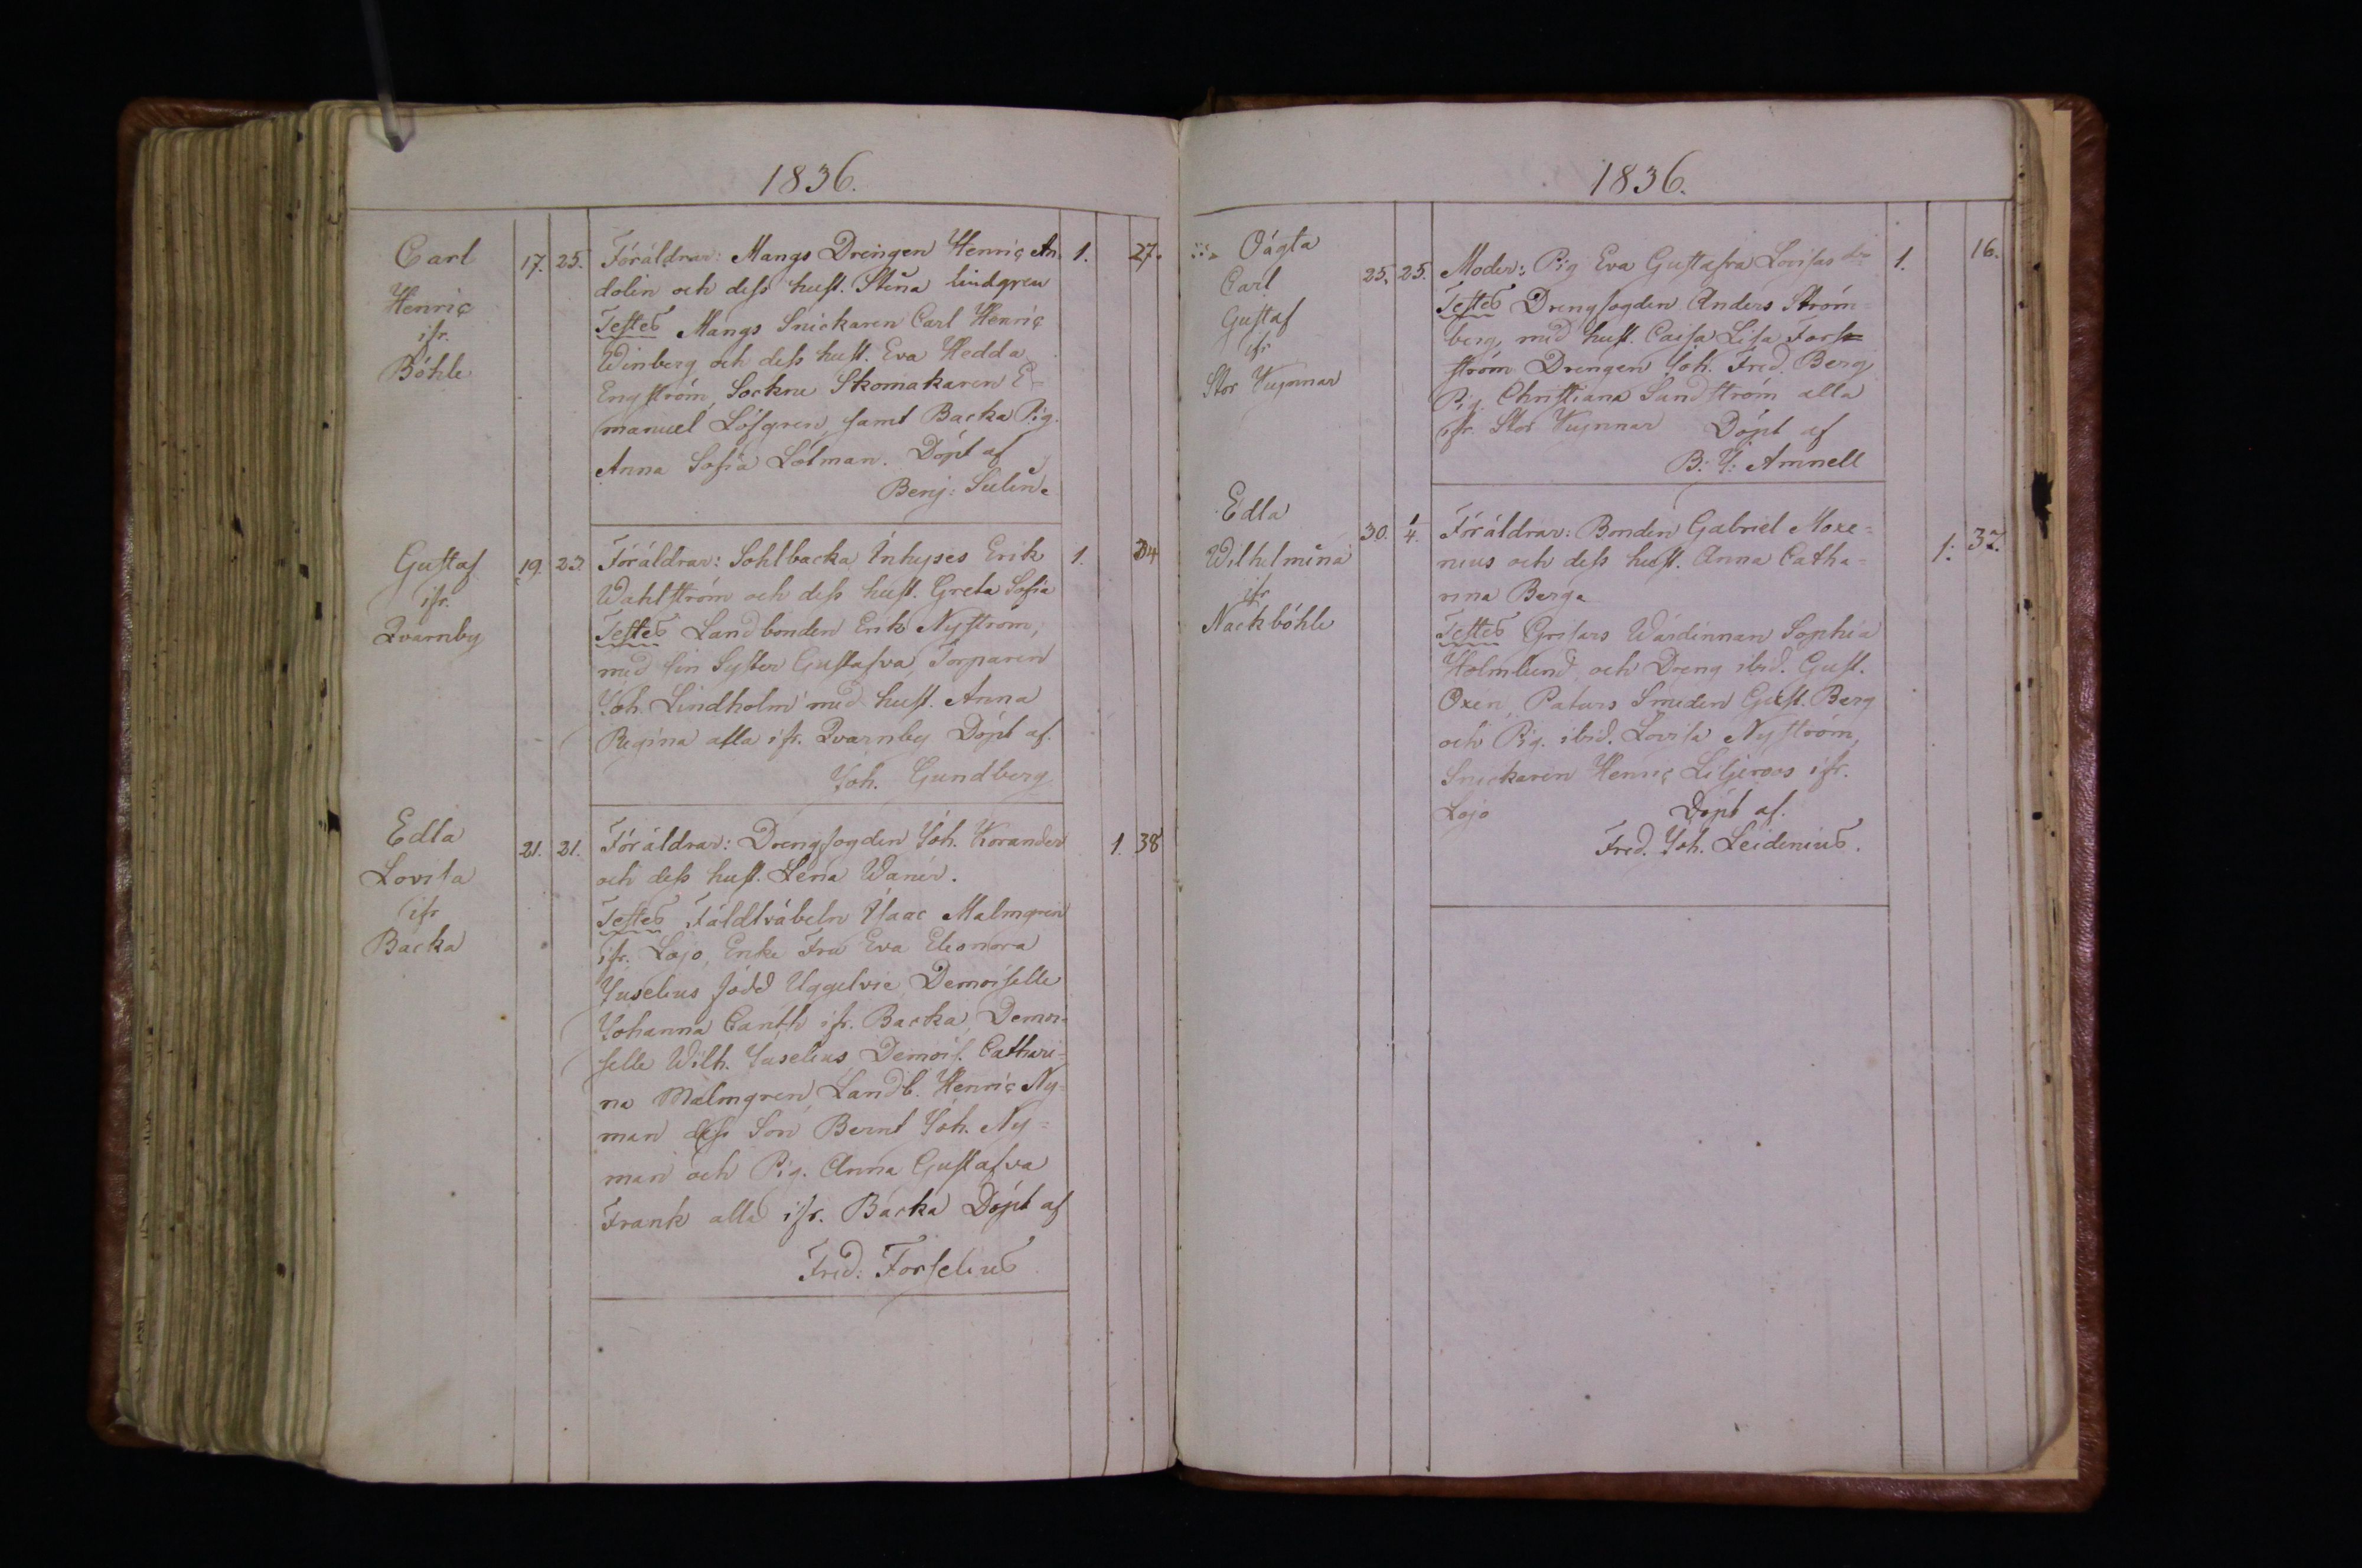 1836.
Carl
Henric
ifr.
Böhle
17. 25.
Föräldrar: Mangs Drengen Henric An
dolin och dess hust. Stina Lindgren
Testes Mangs Snickaren Carl Henric
Winberg och dess hust. Eva Hedda
Engström, Sockne Skomakaren E=
manuel Löfgren, samt Backa Pig.
Anna Sofia Lötman. Döpt af
Benj: Sulin.
1. 27.
Gustaf
ifr.
Qvarnby
19. 23.
Föräldrar: Sohlbacka Inhyses Erik
Wahlström och dess hust. Greta Sofia
Testes Landbonden Erik Nyström,
med sin Syster Gustafva, Torparen
Joh. Lindholm med hust. Anna
Regina alla ifr. Qvarnby Döpt af.
Joh. Gundberg
1. 34
Edla
Lovisa
ifr
Backa
21. 21.
Föräldrar: Drengfogden Joh. Korander
och dess hust. Lena Waner.
Testes Fältväbeln Isaac Malmgren
ifr. Lojo, Enke Fru Eva Eleonora
Juselius född Uggelvie, Demoiselle
Johanna Canth ifr. Backa, Demoi-
selle Wilh. Juselius Demois. Cathari-
na Malmgren, Landb. Henric Ny=
man dess Son Bernt Joh. Ny=
man och Pig. Anna Gustafva
Frank alla ifr. Backa Döpt af
Fred: Forselius
1. 38
1836.
Oägta
Carl
Gustaf
ifr
Stor
25. 25.
Moder: Pig Eva Gustafva Lovisas dr
Testes Drengfogden Anders Ström-
berg, med hust. Caisa Lisa Fors
ström Drengen Joh. Fred. Berg
Pig. Christiana Sandström alla
ifr. Stor Döpt af
B: J: Amnell
1. 16.
Edla
Wilhelmina
ifr
Nackböhle
30. 1/4.
Föräldrar: Bonden Gabriel Moxe=
nius och dess hust. Anna Catha=
rina Berga
Testes Grisars Wärdinnan Sophia
Holmlund, och Dreng ibid. Gust.
Oxen, Paturs Smeden Gust. Berg
och Pig. ibid. Lovisa Nyström,
Snickaren Henric Liljeroos ifr.
Lojo Döpt af.
Fred. Joh. Leidenius.
1. 37.